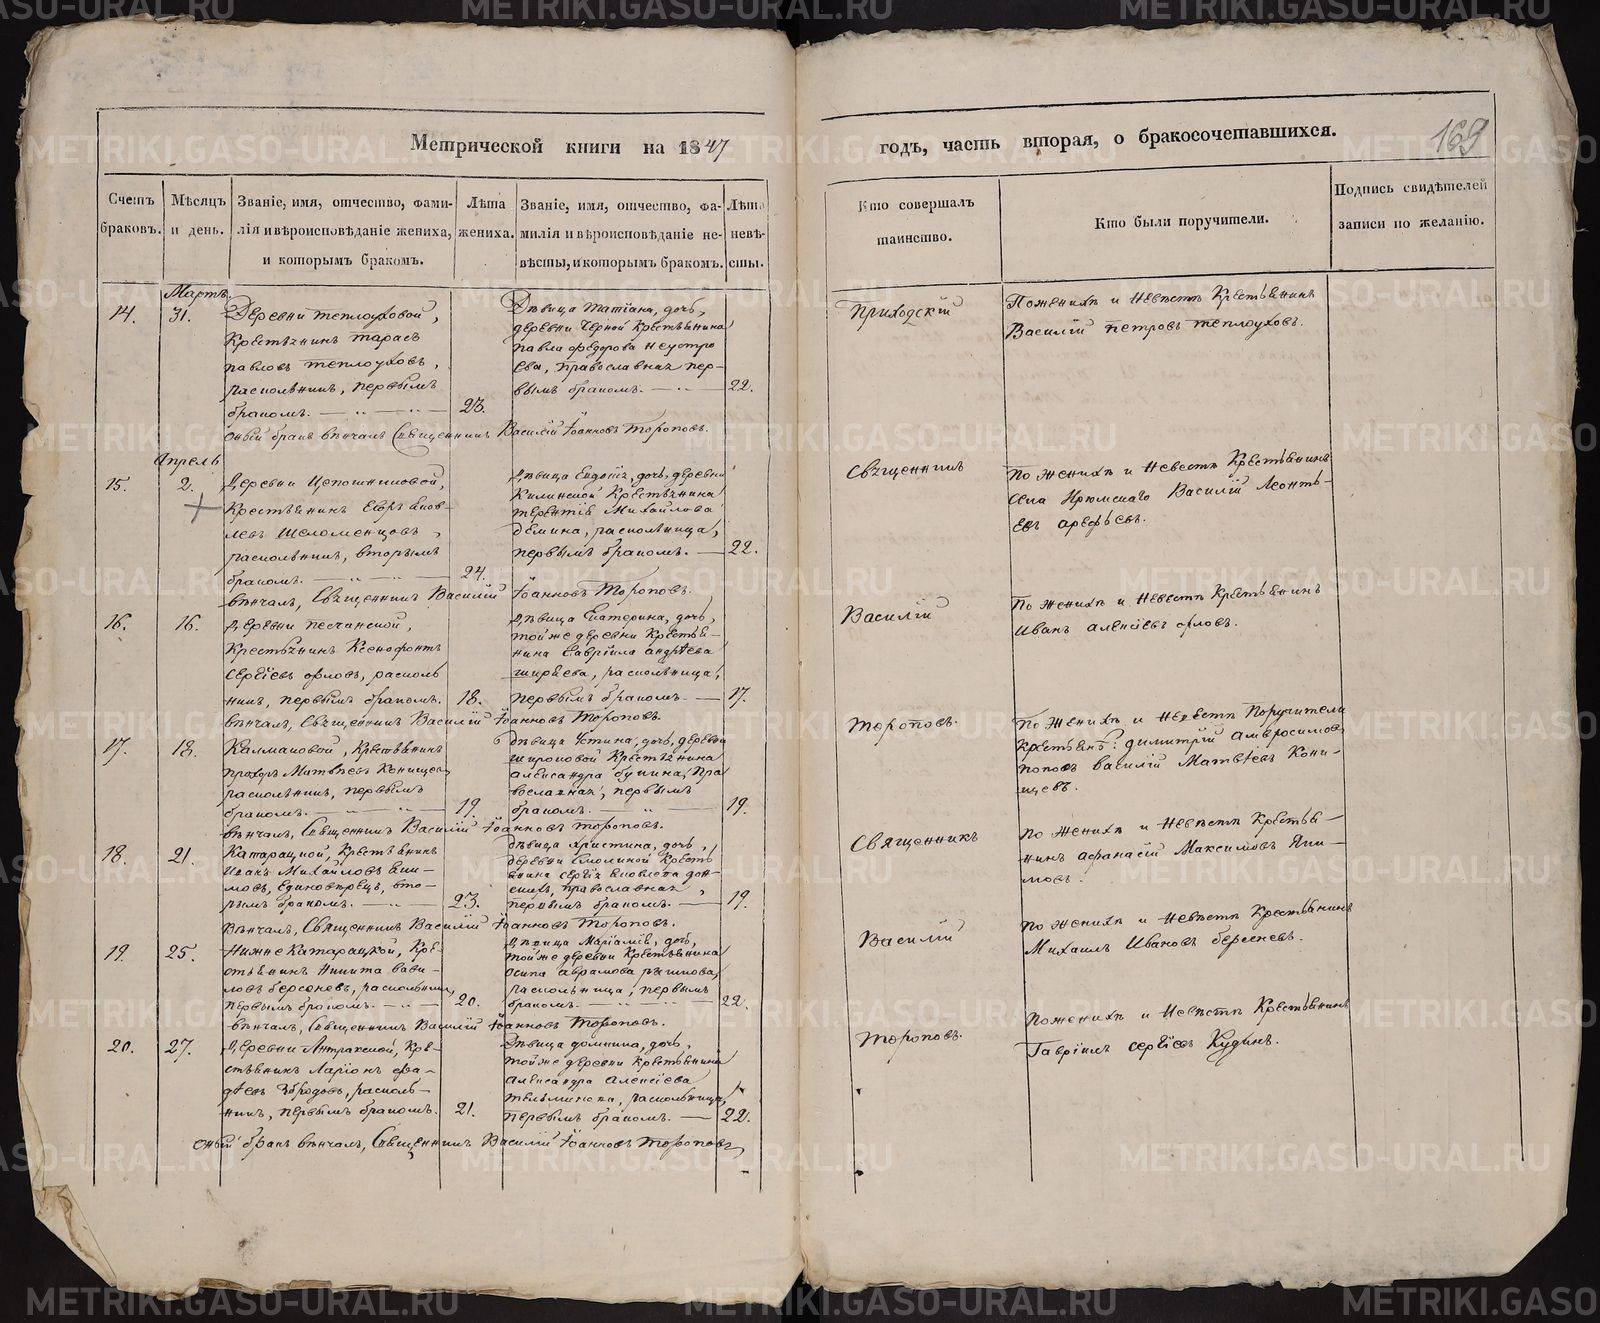 METRIKI.GASO-URAL.RU
Метрической книги на 1847
годъ, часть вторая, о бракосочетавшихся.
169
Счетъ браковъ.
Мѣсяцъ и день.
Званіе, имя, отчество, фами-
лія и вѣроисповѣданіе жениха,
и которымъ бракомъ.
Лѣта
жениха.
Званіе, имя, отчество, фа-
милія и вѣроисповѣданіе не-
вѣсты, и которымъ бракомъ.
Лѣта
невѣ-
сты.
Кто совершалъ
таинство.
Кто были поручители.
Подпись свидѣтелей
записи по желанію.
14.
Мартъ.
31.
Деревни Теплоуховой,
Крестьянинъ Тарасъ
Павловъ Теплоуховъ,
раскольникъ, первымъ
бракомъ.
23.
Дѣвица Татіана, дочь,
деревни Черной Крестьянина
Павла Федорова Неустро
ева, православная пер-
вымъ бракомъ.
22.
Приходскій
По женихѣ и невѣстѣ Крестьянинъ
Василій Петровъ Теплоуховъ.
Оный бракъ вѣнчалъ Священникъ Василій Іоанновъ Тороповъ.
15.
Апрель
2.
Крестьянинъ
раскольникъ, вторымъ
бракомъ.
24.
Дѣвица Евдокія, дочь, деревни
Крестьянина
Терентія Михайлова
Демина, раскольница,
первымъ бракомъ.
22.
Священникъ
По женихѣ и невестѣ Крестьянинъ
Села Ирюмскаго Василій Леонть-
евъ Арефьевъ.
вѣнчалъ, Священникъ Василій Іоанновъ Тороповъ.
16.
16.
Деревни Песчанской,
Крестьянинъ Ксенофонтъ
Сергіевъ Орловъ, расколь
никъ, первымъ бракомъ.
18.
Дѣвица Екатерина, дочь,
той же деревни Крестья-
нина Гавріила Андрѣева
Ширяева, раскольница,
первымъ бракомъ.
17.
Василій
По женихѣ и невестѣ Крестьянинъ
Иванъ Алексіевъ Орловъ.
вѣнчалъ, Священникъ Василій Іоанновъ Тороповъ.
17.
18.
Калмаковой, Крестьянинъ
Прохоръ Матвѣевъ Конищевъ,
раскольникъ, первымъ
бракомъ.
19.
Дѣвица Устина, дочь, деревни
Широковой Крестьянина
Александра Бунина, пра
вославная, первымъ
бракомъ.
19.
Тороповъ.
По женихѣ и невѣстѣ Поручители
Крестьян: Димитрій Амвросимовъ
Поповъ Василій Матвѣевъ Кони-
щевъ.
вѣнчалъ, Священникъ Василій Іоанновъ Тороповъ.
18.
21.
Катарацкой, Крестьянинъ
Иванъ Михайловъ Яки-
мовъ, единовѣрецъ, вто-
рымъ бракомъ.
23.
Дѣвица Христина, дочь,
деревни Смолиной Кресть
янина Сергія
православная,
первымъ бракомъ.
19.
Священникъ
По женихѣ и невѣстѣ Крестья-
нинъ Афанасій Максимовъ Яки-
мовъ.
вѣнчалъ, Священникъ Василій Іоанновъ Тороповъ.
19.
25.
Нижне Катарацкой, Кре-
стьянинъ Никита Вави-
ловъ Берсеневъ, раскольникъ,
первымъ бракомъ.
20.
Дѣвица Маріамія, дочь,
той же деревни Крестьянина
Осипа Аврамова
раскольница, первымъ
бракомъ.
22.
Василій
По женихѣ и невѣстѣ Крестьянинъ
Михаилъ Ивановъ Берсеневъ.
вѣнчалъ, Священникъ Василій Іоанновъ Тороповъ.
20.
27.
Деревни Антракской, Кре-
стьянинъ Ларіонъ Фа-
дѣевъ Збродовъ, расколь-
никъ, первымъ бракомъ.
21.
Дѣвица Домника, дочь,
той же деревни Крестьянина
Александра Алексіева
раскольница,
первымъ бракомъ.
22.
Тороповъ.
По женихѣ и невѣстѣ Крестьянинъ
Гавріилъ Сергіевъ Кудинъ.
Оный бракъ вѣнчалъ, Священникъ Василій Іоанновъ Тороповъ